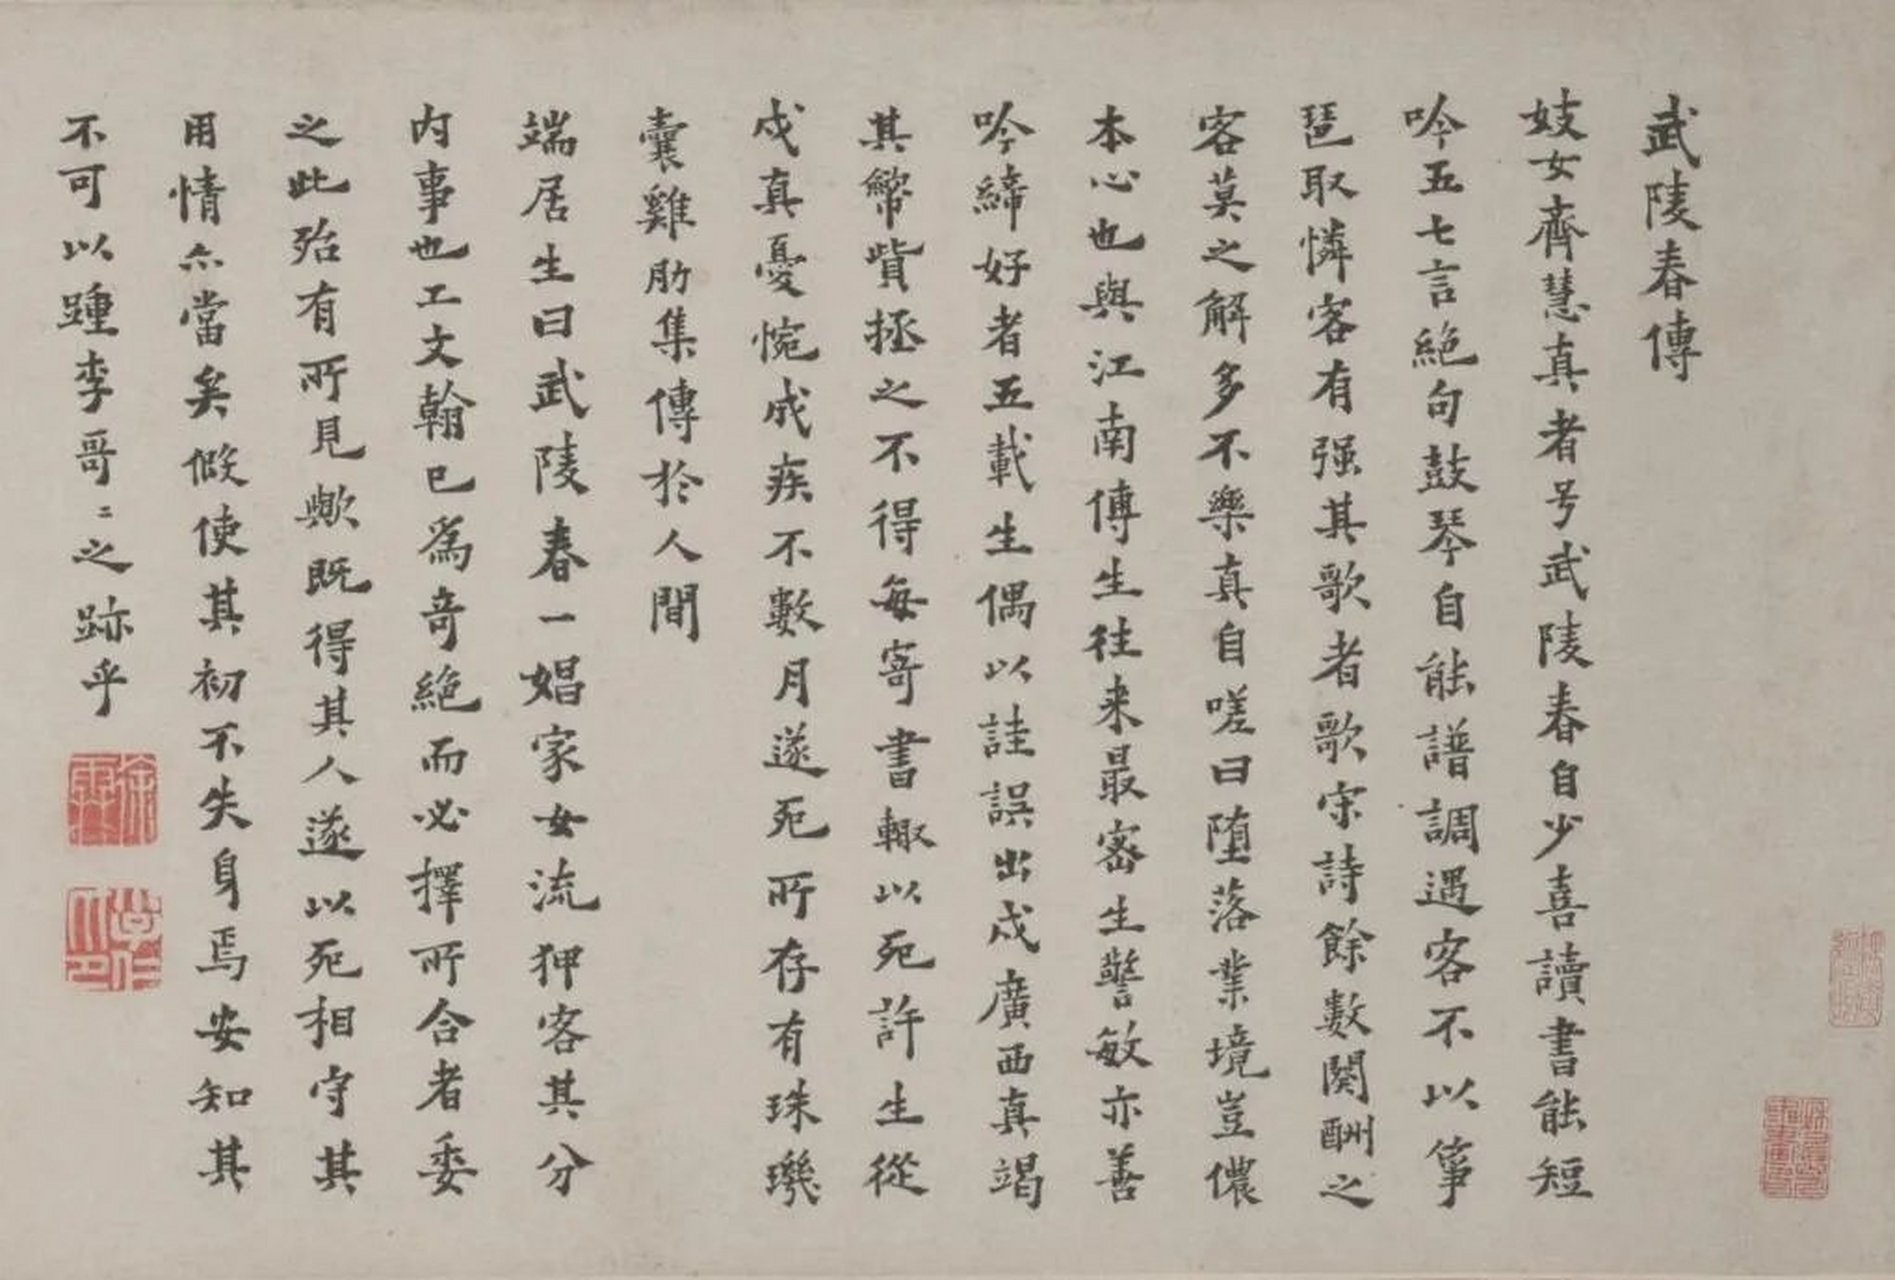 武陵春傳
妓女齊慧真者号武陵春自少喜讀書能短
吟五七言絶句鼓琴自能譜調遇客不以箏
琶取憐客有强其歌者歌宋詩餘數闋酬之
客莫之解多不樂真自嗟曰堕落業境豈儂
本心也與江南傅生往来最密生警敏亦善
吟締好者五載生偶以詿誤出戍廣西真竭
其幣貲拯之不得每寄書輙以死許生從
戍真憂惋成疾不數月遂死所存有珠璣
囊雞肋集傳於人間
端居生曰武陵春一娼家女流狎客其分
内事也工文翰已為奇絶而必擇所合者委
之此殆有所見歟既得其人遂以死相守其
用情亦當矣假使其初不失身焉安知其
不可以踵李哥〻之跡乎
徐霖